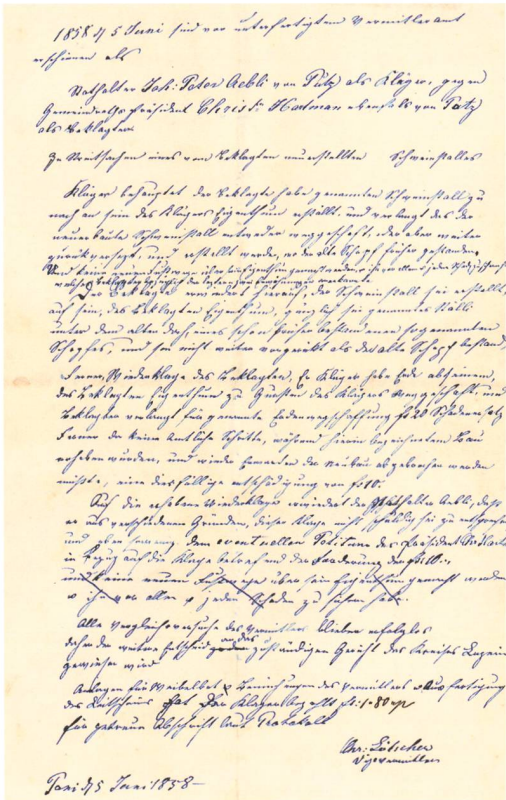 1858 d/ 5 Juni sind vor unterfertigtem Vermitleramt
erschienen als
Stathalter Joh: Peter Aebli von Putz als Kläger, gegen
Gemeinds Präsident Christn Hartman ebenfals von Putz
als Beklagter
In Streitsachen eines vom Beklagten neuerstellten Schweinstalles
Kläger behauptet der Beklagte habe genannten Schweinstall zu
nach an sein des Klägers Eigenthum erstellt, und verlangt das der
neuerbaute Schweinstall entweder weggeschaft, oder aber weiter
zurükversezt, und erstellt werde, wo der alte Schopf früher gestanden
Und keine neuen Fuhrwege über sein Eigenthum gemacht werden, ihn vor allem & jedem Schaden zu
Der Beklagte erwiedert hierauf, der Schweinstall sei erstellt
auf sein, des Beklagten Eigenthum, sei genannter Stall
unter dem alten dach eines schon früher bestandenen sogenannten
Schopfes, und sei nicht weiter vorgerükt als der alte Schopf bestand.
Ferner, Wiederklage des Beklagten, Hr Kläger habe Erde ab seinem,
des Beklagten Eigenthum zu Gunsten des Klägers weggeschaft, und
Beklagter verlangt für genannte Erdenwegschaffung fr 20 Schadenersatz
Ferner da keine Amtliche Schritte, während hierin bezeichnetem Bau
erhoben wurden, und wieder Erwarten der Neubau abgebrochen werden
müßte, eine diesfällige entschädigung von fr 10.
Auf die erhobene Wiederklage erwiedert der Stathalter Aebli, daß
er aus verschiedenen Gründen, dieser Klage nicht schuldig sei zu entsprechen
und dem eventuellen Petitum des Präsident Hr Hartman
in Bezug auf die Klage betreffend der Forderung der
und keine neuen Fuhrwege über sein Eigenthum gemacht werden
& ihn vor allem & jedem Schaden zu
Alle Vergleichsversuche des Vermitlers blieben erfolglos
daher der weitere Entscheid an das zuständigen Gericht des Kreises Luzein
gewiesen wird
Anlagen für Weibelbot & Bemühungen des Vermitlers & Ausfertigung
des Leitscheins hat der Kläger bezahlt fr. 1.80 rp
für getreue Abschrift laut Protokoll
Chr: Lötscher
Vizevermitler
Pani d/ 5 Juni 1858 —